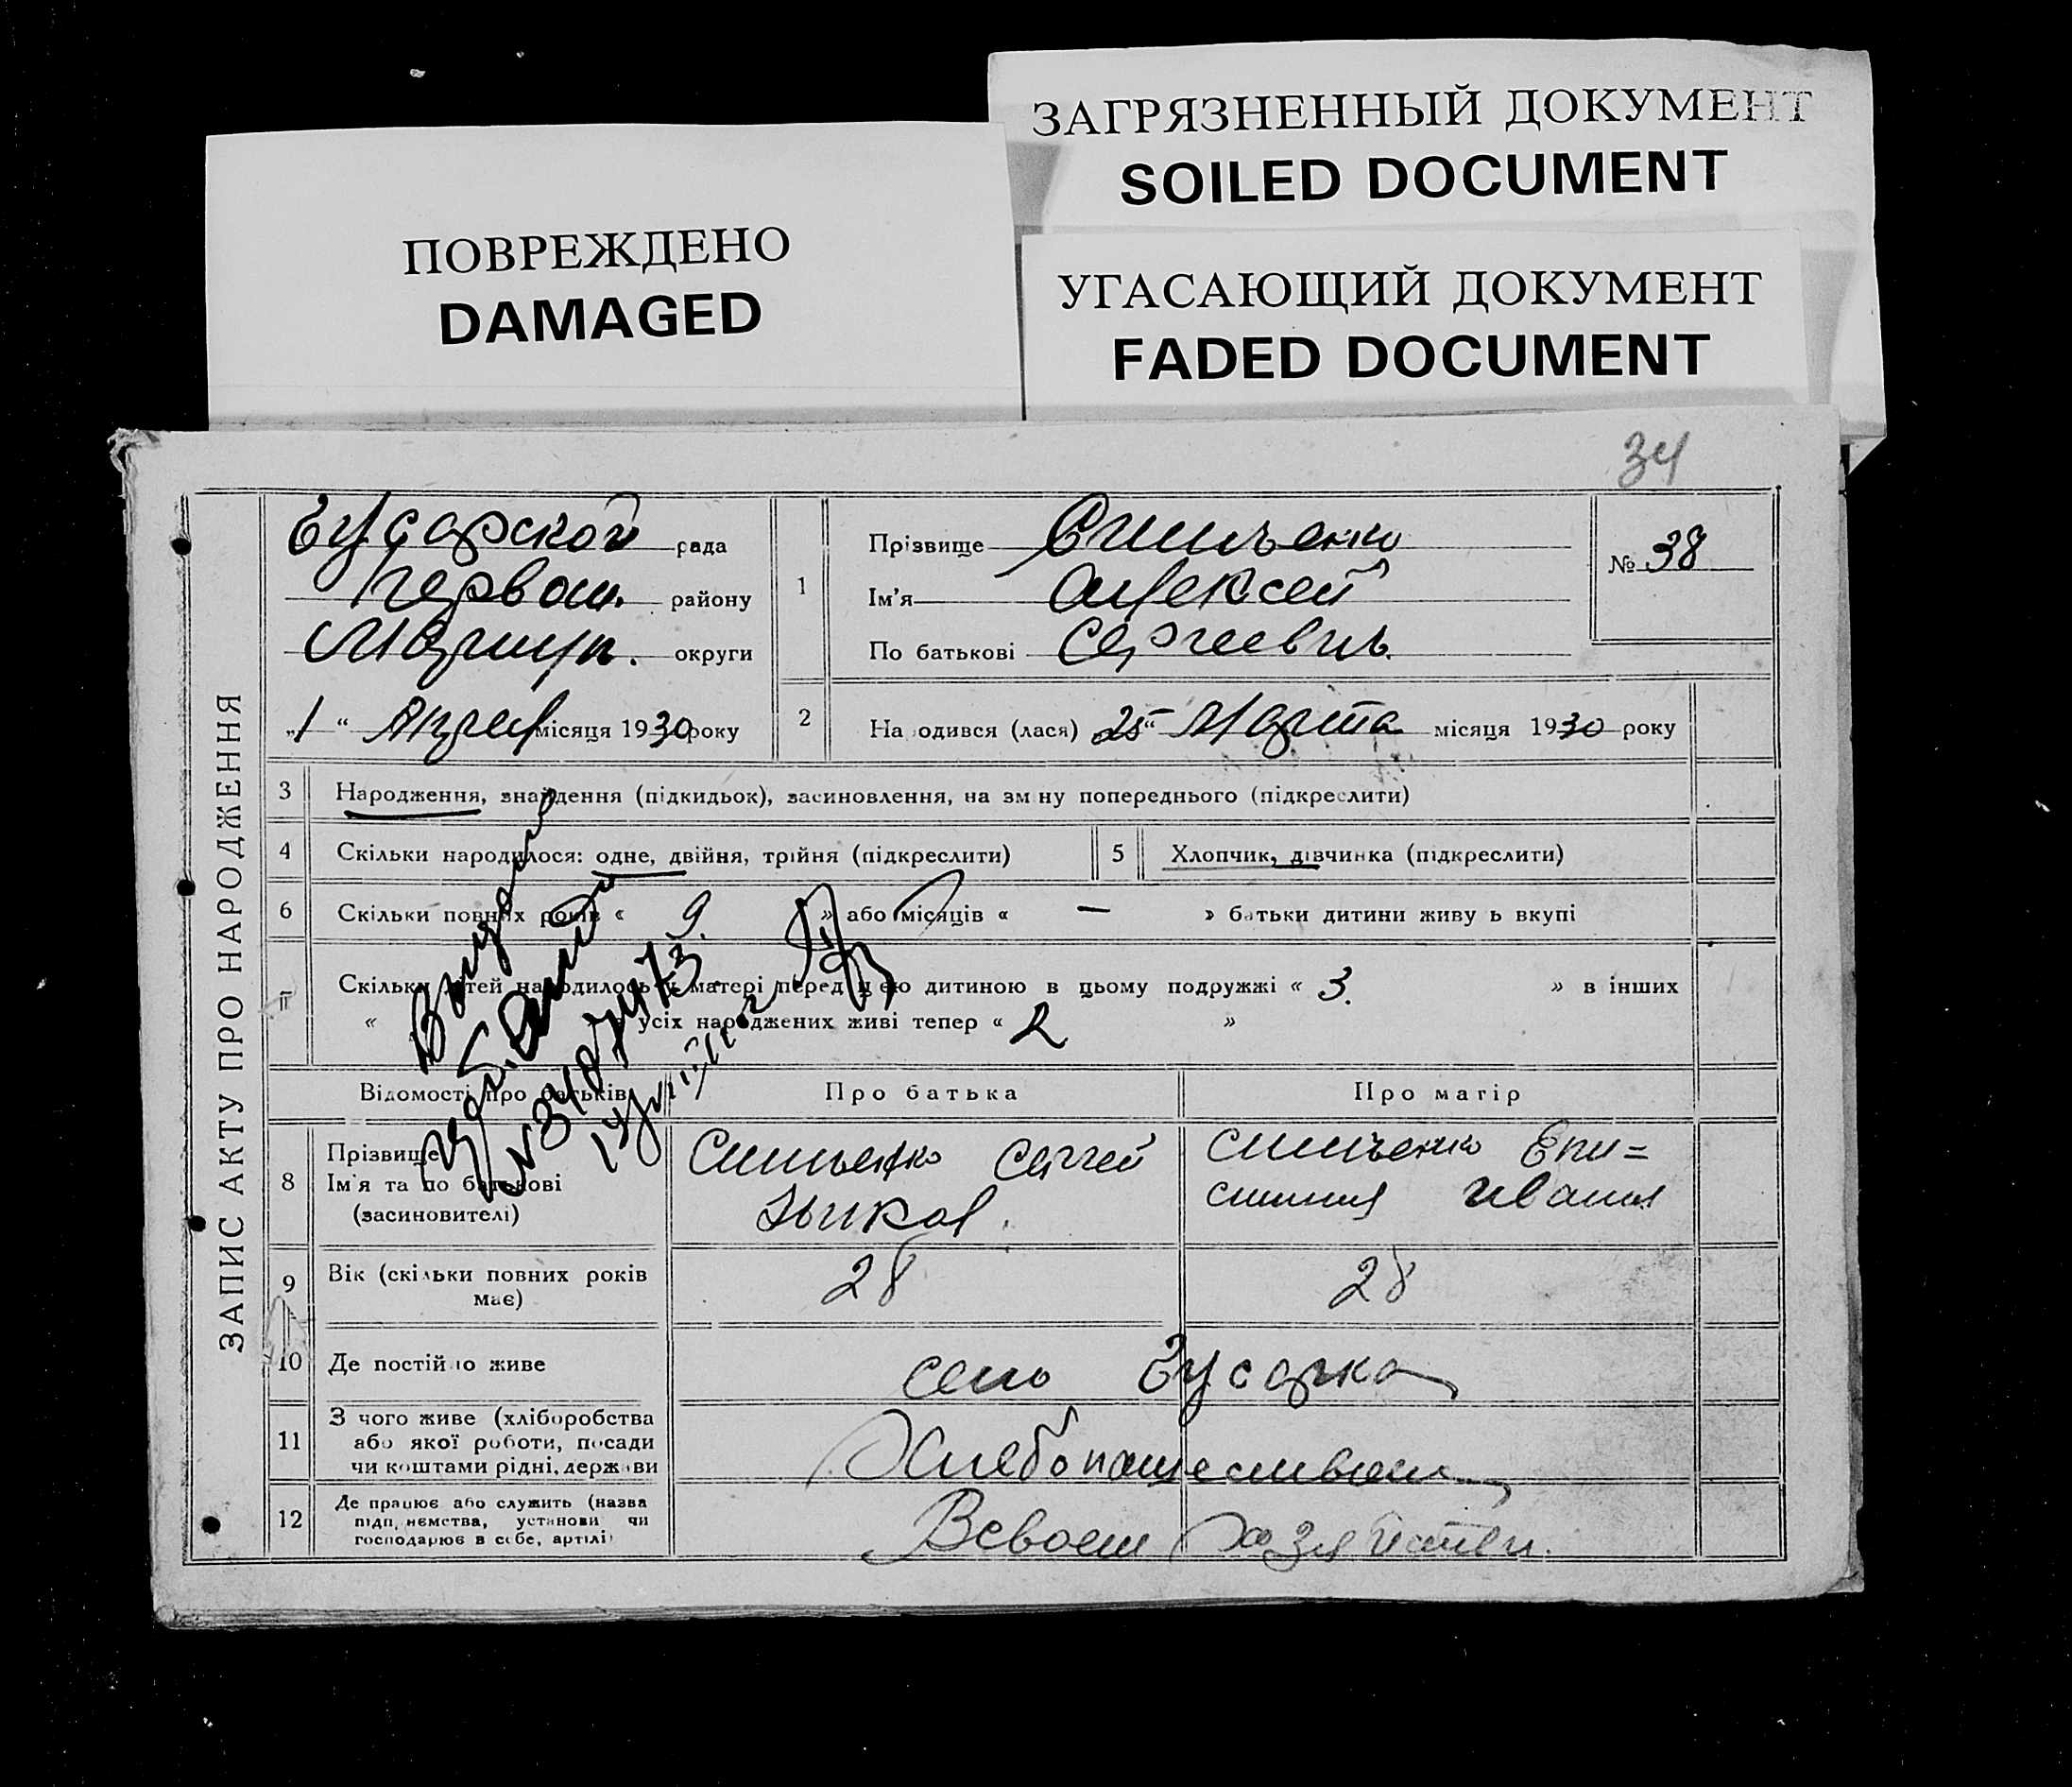 ЗАГРЯЗНЕННЫЙ ДОКУМЕНТ
SOILED DOCUMENT
ПОВРЕЖДЕНО
DAMAGED
УГАСАЮЩИЙ ДОКУМЕНТ
FADED DOCUMENT
34
ЗАПИС АКТУ ПРО НАРОДЖЕННЯ
рада
Первом. району
Мариуп. округи
„1“ Апрел місяця 1930 року
1
Прізвище
Ім'я Алексей
По батькові Сергеевич
№ 38
2 На одився (лася) 25“ Марта місяця 1930 року
3 Народження, знайдення (підкидьок), засиновлення, на зм ну попереднього (підкреслити)
4 Скільки народилося: одне, двійня, трійня (підкреслити)
5 Хлопчик, дівчинка (підкреслити)
6 Скільки повних років « 9. » або місяців « — » батьки дитини живу ь вкупі
Скільки дітей народилось у матері перед цею дитиною в цьому подружжі « 3. » в інших
« усіх народжених живі тепер « 2 »
Відомості про батьків Про батька Про матір
8 Прізвище
Ім'я та по батькові
(засиновителі)
Сергей
Иван
9 Вік (скільки повних років
має)
28 28
10 Де постійно живе
село
11 З чого живе (хліборобства
або якої роботи, посади
чи коштами рідні, держави
Хлебопашеством
12 Де працює або служить (назва
підп нємства, установи чи
господарює в себе, артілі)
Всвоем хазяйстве.